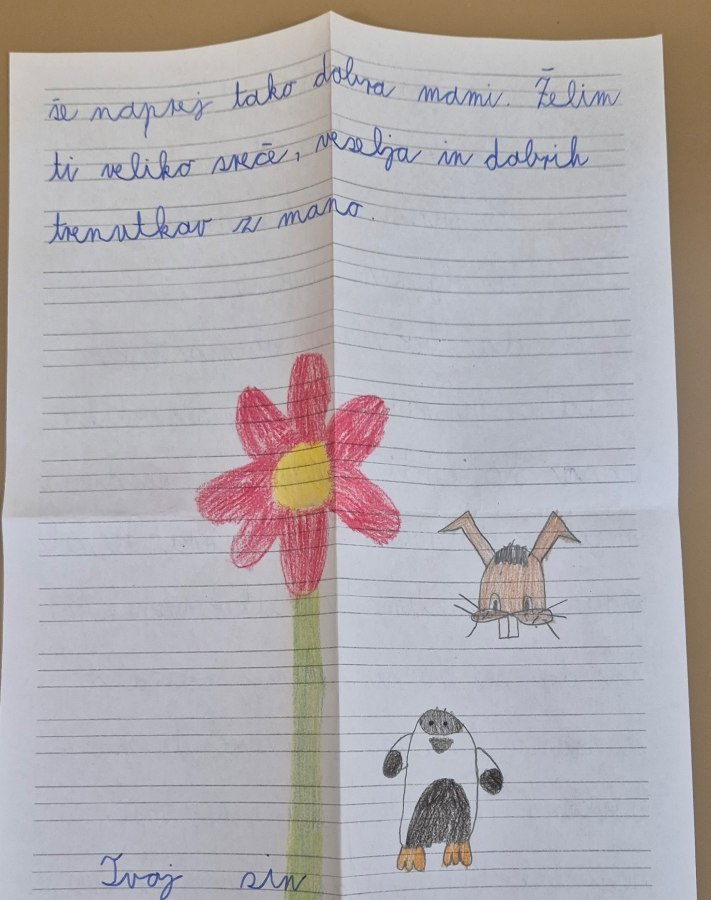 še naprej tako dobra mami. Želim
ti veliko sreče, veselja in dobrih
trenutkov z mano.
Tvoj sin